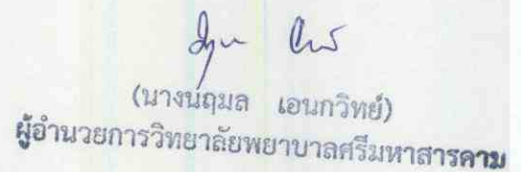 (นางนฤมล เอนกวิทย์)
ผู้อำนวยการวิทยาลัยพยาบาลศรีมหาสารคาม